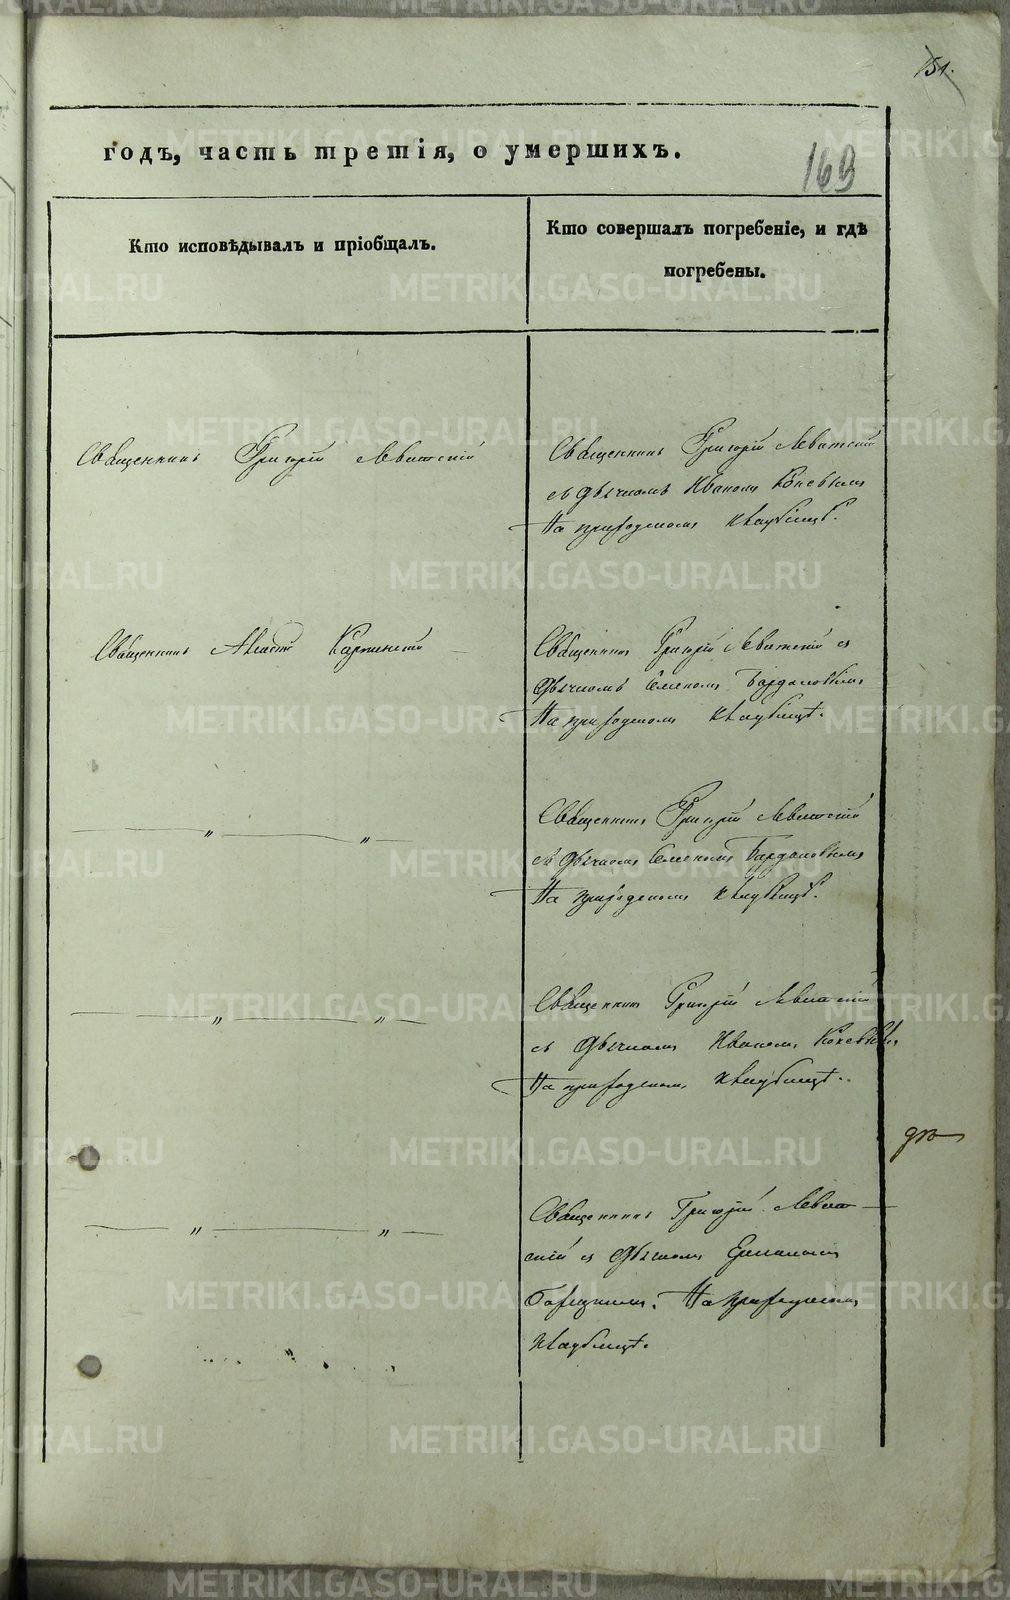 151.
годъ, часть третія, о умершихъ.
169
Кто исповѣдывалъ и пріобщалъ.
Кто совершалъ погребеніе, и гдѣ
погребены.
Священникъ Григорій Левитскій
Священникъ Григорій Левитскій
съ дьячкомъ Иваномъ Коневымъ
На приходскомъ кладбищѣ.
Священникъ Карпинскій
Священникъ Григорій Левитскій съ
дьячкомъ Семеномъ
На приходскомъ кладбищѣ.
— „ — „ —
Священникъ Григорій Левитскій
съ дьячкомъ Семеномъ
На приходскомъ кладбищѣ.
— „ — „ —
Священникъ Григорій Левитскій
съ дьячкомъ Иваномъ Коневымъ
На приходскомъ кладбищѣ.
— „ — „ —
Священникъ Григорій Левит-
скій съ дьячкомъ
На приходскомъ
кладбищѣ.
METRIKI.GASO-URAL.RU